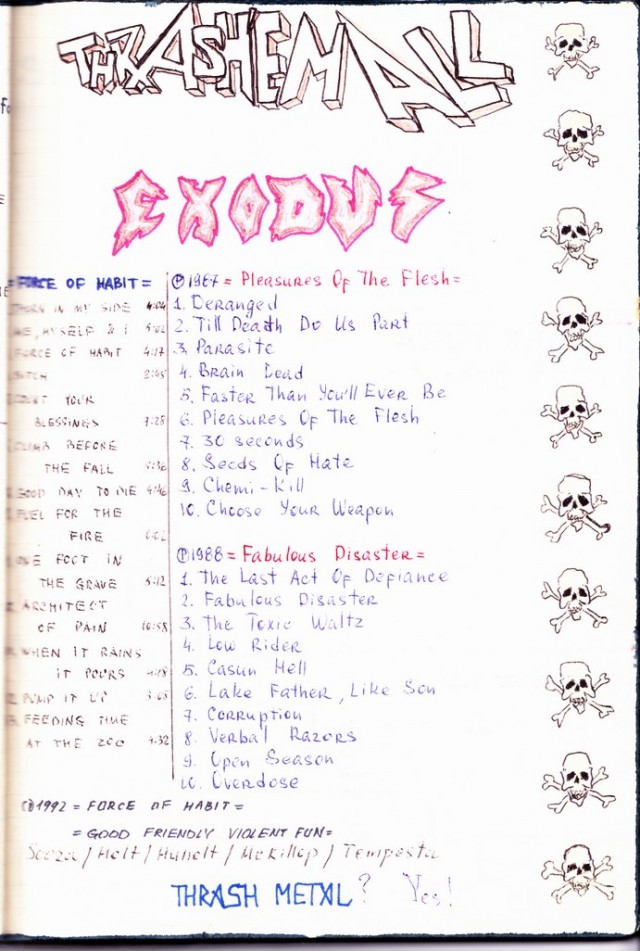 THRASH EM ALL
EXODUS
= FORCE OF HABIT =
THORN IN MY SIDE 4:04
ME, MYSELF & I 5:02
FORCE OF HABIT 4:17
BITCH 2:45
COUNT YOUR
BLESSINGS 7:28
CLIMB BEFORE
THE FALL
GOOD DAY TO DIE 4:46
FUEL FOR THE
FIRE
ONE FOOT IN
THE GRAVE 5:12
ARCHITECT
OF PAIN 10:58
WHEN IT RAINS
IT POURS
PUMP IT UP
FEEDING TIME
AT THE ZOO 4:32
Ⓟ1987 = Pleasures Of The Flesh =
1. Deranged
2. Till Death Do Us Part
3. Parasite
4. Brain Dead
5. Faster Than You'll Ever Be
6. Pleasures Of The Flesh
7. 30 seconds
8. Seeds Of Hate
9. Chemi-Kill
10. Choose Your Weapon
Ⓟ1988 = Fabulous Disaster =
1. The Last Act Of Defiance
2. Fabulous Disaster
3. The Toxic Waltz
4. Low Rider
5. Casun Hell
6. Lake Father, Like Son
7. Corruption
8. Verbal Razors
9. Open Season
10. Overdose
Ⓟ1992 = FORCE OF HABIT =
= GOOD FRIENDLY VIOLENT FUN =
Souza / Holt / Hunolt / McKillop / Tempesta
THRASH METAL? Yes!